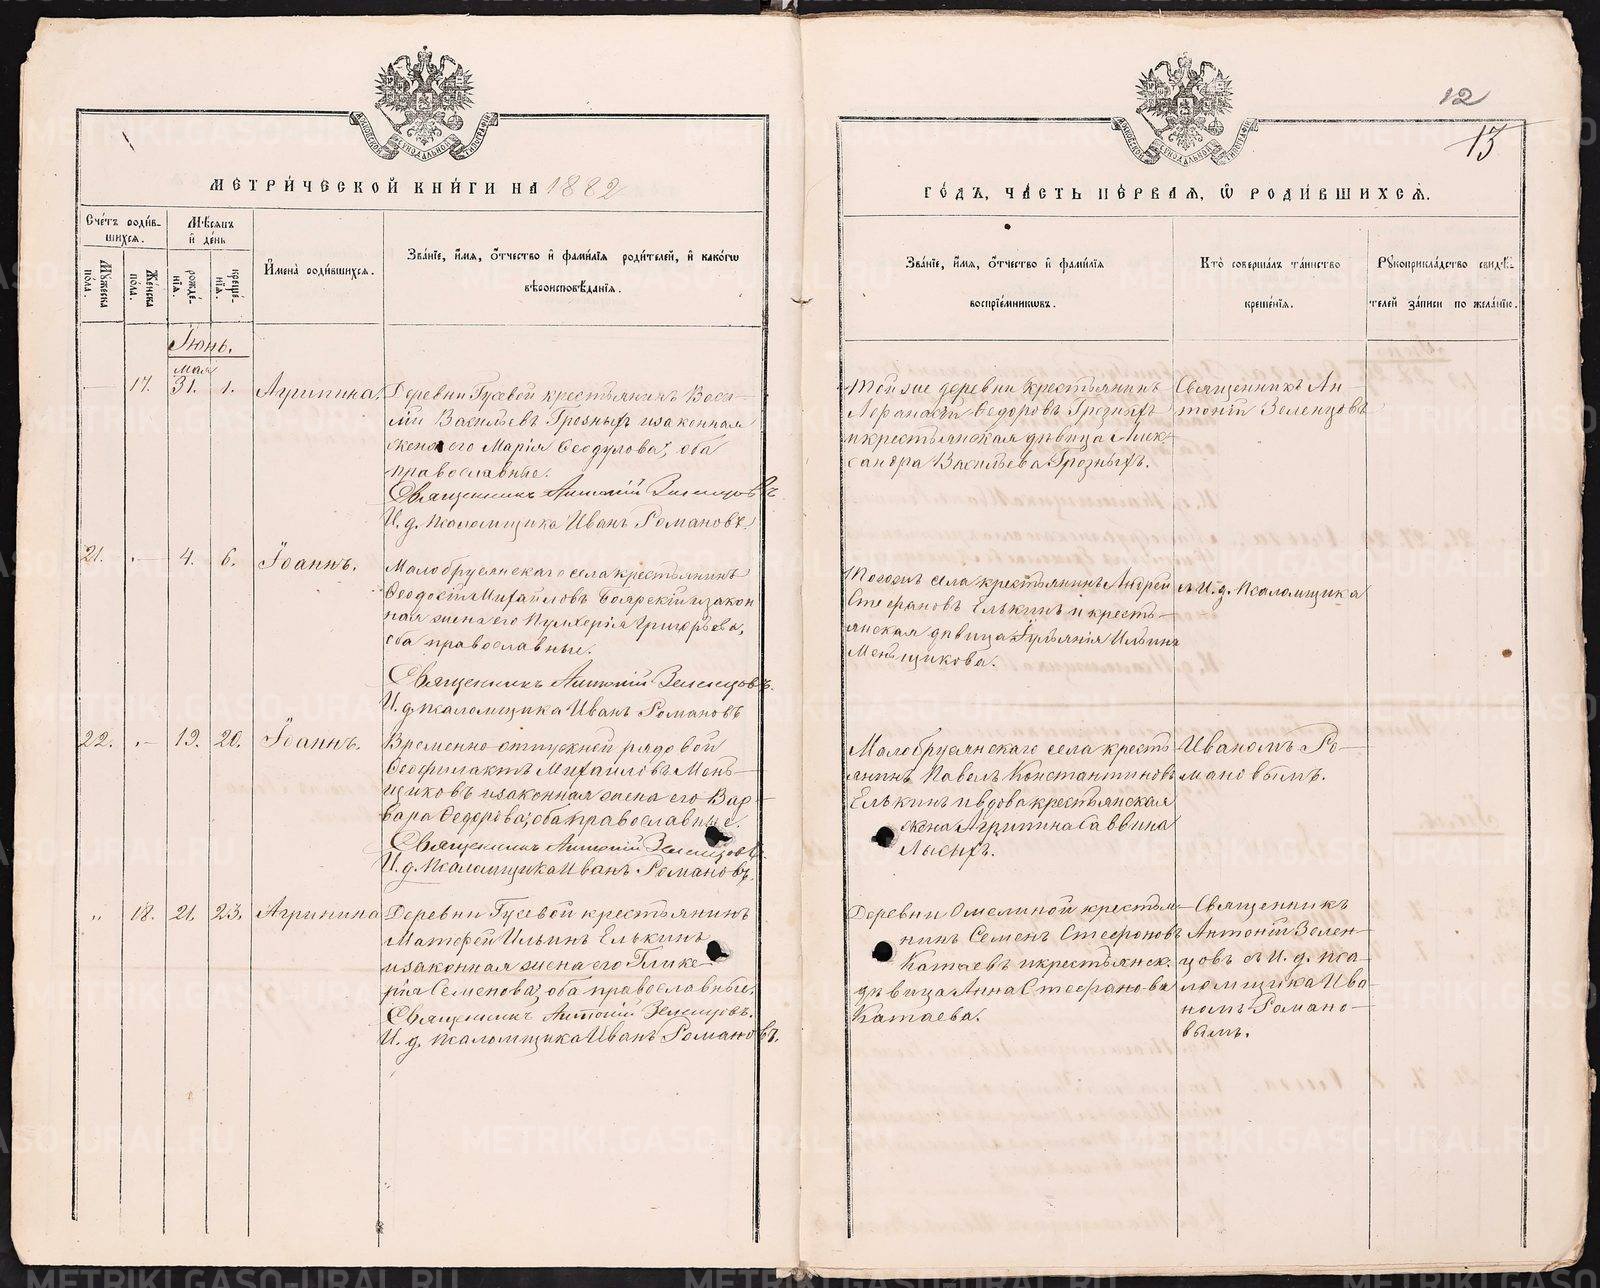 МЕТРИ́ЧЕСКОЙ КНИ́ГИ НА 1882
Сче́тъ роди́в-
шихся.
Мѣ́сяцъ
и҆ де́нь
Му́жеска
по́ла.
Же́нска
по́ла.
рожде́-
нїя.
креще́-
нїя.
И҆мена̀ роди́вшихся.
Зва́нїе, и҆́мя, ѻ҆́тчество и҆ фами́лїя роди́телей, и҆ како́гѡ
вѣроисповѣ́данїя.
Іюнь.
мая
17. 31. 1. Агрипина.
Деревни Гусевой крестьянинъ Васи-
лій Васильевъ Грозныхъ и законная
жена его Марія Ѳеодулова, оба
православные.
Священникъ Антоній Зеленцовъ
И. д. псаломщика Иванъ Романовъ.
21. 4. 6. Іоаннъ.
Малобрусянскаго села крестьянинъ
Ѳеодосій Михайловъ Боярскій и закон
ная жена его Пульхерія Григорьева,
оба православные.
Священникъ Антоній Зеленцовъ.
И. д. псаломщика Иванъ Романовъ
22. 19. 20. Іоаннъ.
Временно-отпускной рядовой
Ѳеофилактъ Михайловъ Мень-
щиковъ и законная жена его Вар-
вара Ѳедорова, оба православные.
Священникъ Антоній Зеленцовъ.
И. д. псаломщика Иванъ Романовъ.
„ 18. 21. 23. Агрипина
Деревни Гусевой крестьянинъ
Матфей Ильинъ Елькинъ
и законная жена его Глике-
рія Семенова, оба православные.
Священникъ Антоній Зеленцовъ.
И. д. псаломщика Иванъ Романовъ.
12
13
ГО́ДЪ, ЧА́СТЬ ПЕ́РВАЯ, Ѿ РОДИ́ВШИХСЯ.
Зва́нїе, и҆́мя, ѻ҆́тчество и҆ фами́лїя
воспрїе́мникѡвъ.
Кто̀ соверша́лъ та́инство
креще́нїя.
Рꙋкоприкла́дство свидѣ́-
телей за́писи по жела́нїю.
Той же деревни крестьянинъ
Аѳанасій Ѳедоровъ Грозныхъ
и крестьянская дѣвица Алек-
сандра Васильева Грозныхъ.
Священникъ Ан-
тоній Зеленцовъ
Тогожъ села крестьянинъ Андрей
Стефановъ Елькинъ и кресть-
янская дѣвица Іульянія Ильина
Меньщикова.
съ И. д. псаломщика
Малобрусянскаго села кресть-
янинъ Павелъ Константиновъ
Елькинъ и вдова крестьянская
жена Агрипина Саввина
Лысыхъ.
Иваномъ Ро-
мановымъ.
Деревни Омелиной крестья-
нинъ Семенъ Стефановъ
Катаевъ и крестьянск.
дѣвица Анна Стефанова
Катаева.
Священникъ
Антоній Зелен-
цовъ съ И. д. пса-
ломщика Ива-
номъ Романо-
вымъ.